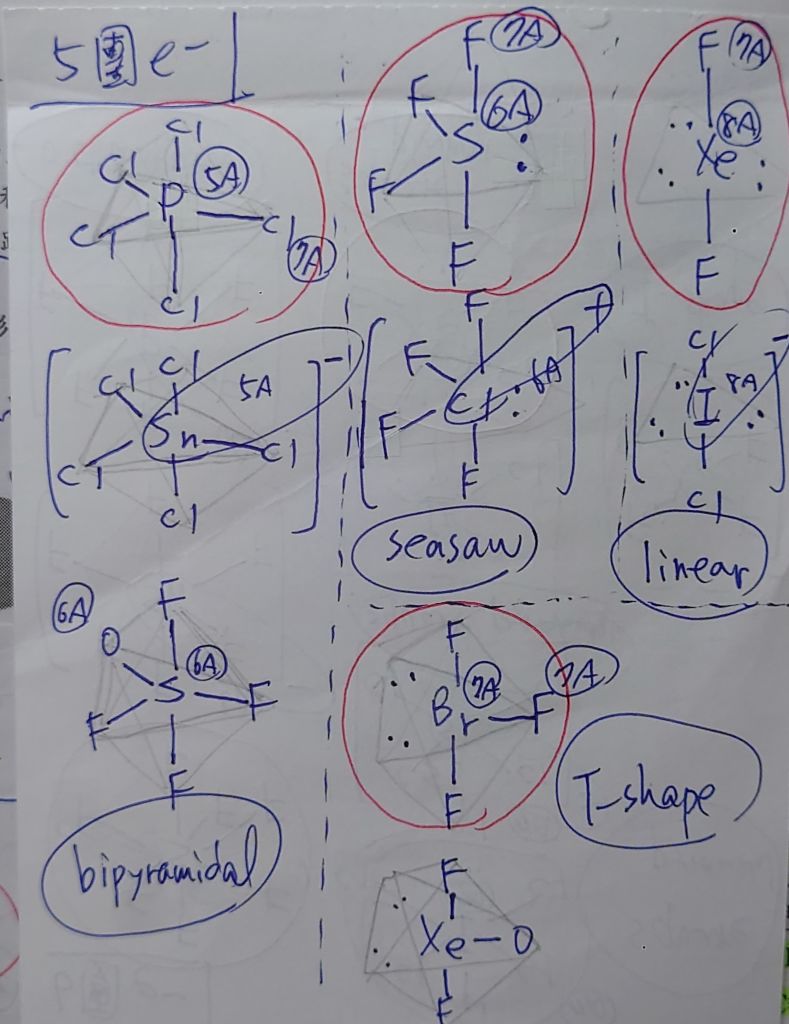 5 e-
Cl
Cl
P
5A
Cl
Cl
7A
Cl
F
7A
F
6A
S
:
F
F
F
7A
8A
Xe
F
Cl
Cl
5A
Sn
Cl
Cl
Cl
-1
F
+
F
6A
Cl
:
F
F
seasaw
Cl
-
8A
I
Cl
linear
6A
F
O
6A
S
F
F
F
bipyramidal
F
7A
7A
Br
F
F
T-shape
F
Xe-O
F